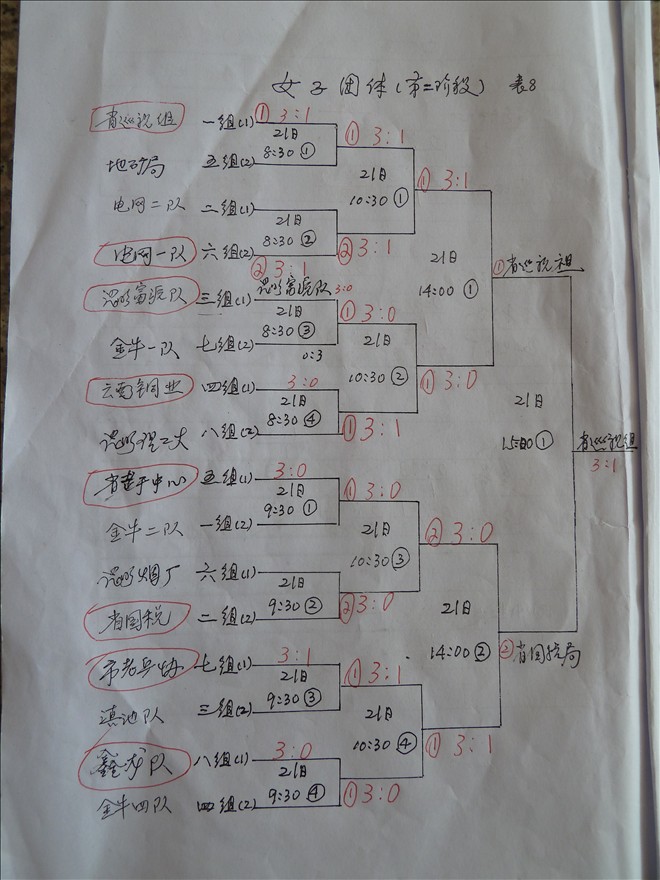 女子团体(第二阶段) 表8
省巡视组 一组(1) ① 3:1 ① 3:1
21日
8:30 ①
地矿局 五组(2)
21日
10:30 ①
① 3:1
电网二队 二组(1)
21日
8:30 ②
电网一队 六组(2) ② 3:1
② 3:1
21日
14:00 ①
① 省巡视组
昆明富源队 三组(1) 昆明富源队 3:0
① 3:0
21日
8:30 ③
金牛一队 七组(2) 0:3
21日
10:30 ②
① 3:0
云南铜业 四组(1) 3:0
21日
8:30 ④
昆明理工大 八组(2) ① 3:1
21日
15:00 ①
省巡视组
3:1
五组(1) 3:0 ① 3:0
21日
9:30 ①
金牛二队 一组(2)
21日
10:30 ③
② 3:0
昆明烟厂 六组(1)
21日
9:30 ②
省国税 二组(2) ② 3:0
21日
14:00 ②
② 省国税局
市老乒协 七组(1) 3:1 ① 3:1
21日
9:30 ③
滇池队 三组(2)
21日
10:30 ④
① 3:1
鑫龙队 八组(1) 3:0
21日
9:30 ④
金牛四队 四组(2) ① 3:0